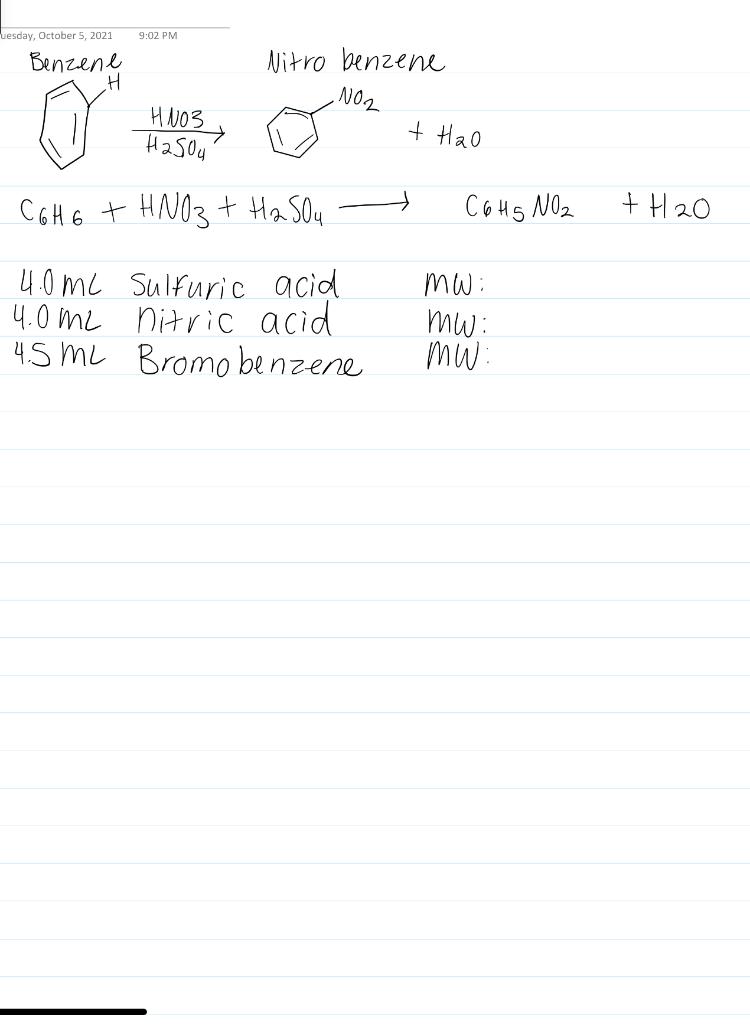 uesday, October 5, 2021 9:02 PM
Benzene Nitro benzene
H NO2
HNO3
H2SO4 + H2O
C6H6 + HNO3 + H2SO4 → C6H5NO2 + H2O
4.0 mL Sulfuric acid MW:
4.0 mL nitric acid MW:
4.5 mL Bromobenzene MW: